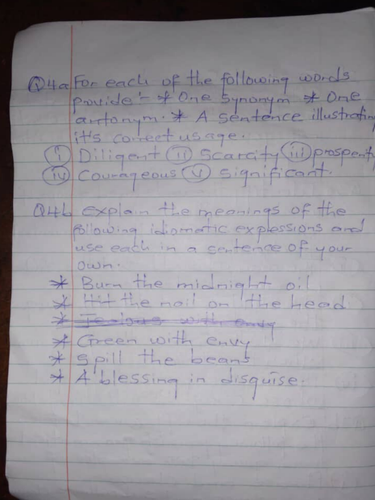 Q4a For each of the following words
provide:- * One Synonym * One
antonym. * A Sentence illustrating
it's correct usage.
(i) Diligent (ii) Scarcity (iii) prosperity
(iv) Courageous (v) Significant.
Q4b explain the meanings of the
following idiomatic expressions and
use each in a sentence of your
own.
* Burn the midnight oil
* Hit the nail on the head
* Green with envy
* Spill the beans
* A blessing in disguise.